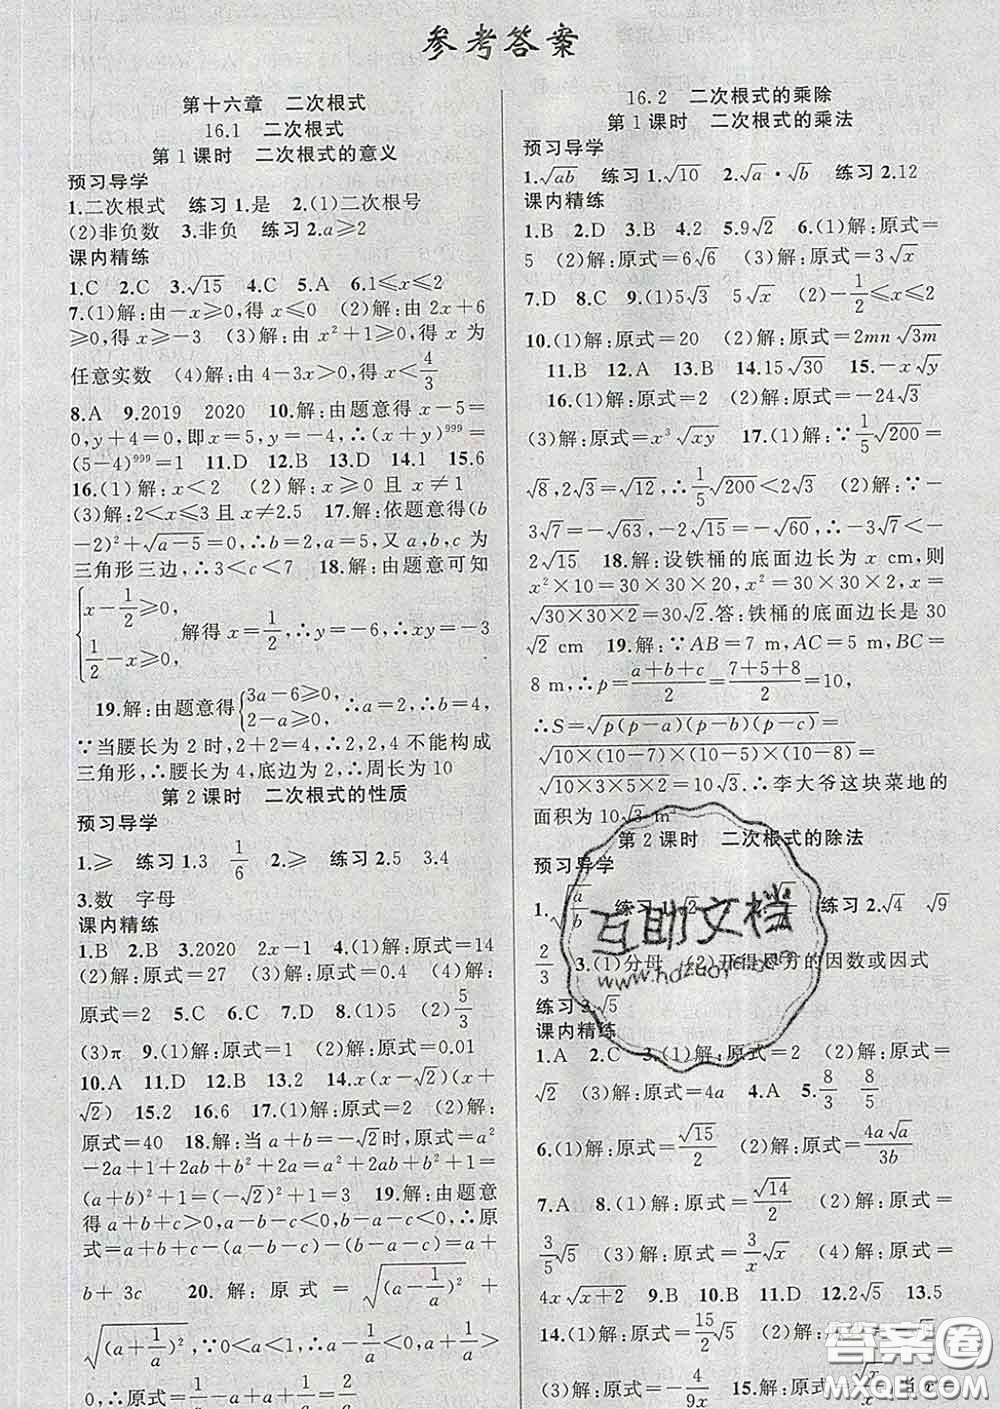 参考答案
第十六章 二次根式
16.1 二次根式
第1课时 二次根式的意义
预习导学
1.二次根式 练习1.是 2.(1)二次根号
(2)非负数 3.非负 练习2.a≥2
课内精练
1.C 2.C 3.√15 4.C 5.A 6.1≤x≤2
7.(1)解:由-x≥0,得x≤0 (2)解:由2x+6
≥0,得x≥-3 (3)解:由x²+1≥0,得x为
任意实数 (4)解:由4-3x>0,得x<4/3
8.A 9.2019 2020 10.解:由题意得x-5=
0,y+4=0,即x=5,y=-4,∴(x+y)⁹⁹⁹=
(5-4)⁹⁹⁹=1 11.D 12.B 13.D 14.1 15.6
16.(1)解:x<2 (2)解:x≥0且x≠1
(3)解:2<x≤3且x≠2.5 17.解:依题意得(b
-2)²+√(a-5)=0,∴b=2,a=5,又a,b,c为
三角形三边,∴3<c<7 18.解:由题意可知
{x-1/2≥0, 1/2-x≥0, 解得x=1/2,∴y=-6,∴xy=-3
19.解:由题意得{3a-6≥0, 2-a≥0, ∴a=2,∴b=4,
∵当腰长为2时,2+2=4,∴2,2,4不能构成
三角形,∴腰长为4,底边为2,∴周长为10
第2课时 二次根式的性质
预习导学
1.≥ 练习1.3 1/6 2.≥ 练习2.5 3.4
3.数 字母
课内精练
1.B 2.B 3.2020 2x-1 4.(1)解:原式=14
(2)解:原式=27 (3)解:原式=0.4 (4)解:
原式=2 5.C 6.C 7.D 8.(1)5 (2)5/3
(3)π 9.(1)解:原式=1 (2)解:原式=0.01
10.A 11.D 12.B 13.2 14.x(x-√2)(x+
√2) 15.2 16.6 17.(1)解:原式=2 (2)解:
原式=40 18.解:当a+b=-√2时,原式=a²
-2a+1+2ab+b²+2a=a²+2ab+b²+1=
(a+b)²+1=(-√2)²+1=3 19.解:由题意
得a+b+c>0,a-b-c<0,b-a-c<0,∴原
式=a+b+c-(a-b-c)-(b-a-c)=a+
b+3c 20.解:原式=√((a-1/a)²)+
√((a+1/a)²),∵0<a<1,∴a-1/a<0,a+1/a>
0,∴原式=1/a-a+a+1/a=2/a
16.2 二次根式的乘除
第1课时 二次根式的乘法
预习导学
1.√ab 练习1.√10 2.√a·√b 练习2.12
课内精练
1.B 2.D 3.B 4.2 5.9√2 6.(1)解:原式=
5 (2)解:原式=6√6 (3)解:原式=3√x
7.D 8.C 9.(1)5√3 5√3 (2)-1/2≤x≤2
10.(1)解:原式=20 (2)解:原式=2mn√3m
11.B 12.A 13.B 14.15√30 15.-x√y
16.(1)解:原式=2 (2)解:原式=-24√3
(3)解:原式=x³√xy 17.(1)解:∵1/5√200=
√8,2√3=√12,∴1/5√200<2√3 (2)解:∵-
3√7=-√63,-2√15=-√60,∴-3√7<-
2√15 18.解:设铁桶的底面边长为x cm,则
x²×10=30×30×20,x²=30×30×2,x=
√(30×30×2)=30√2.答:铁桶的底面边长是30
√2 cm 19.解:∵AB=7 m,AC=5 m,BC=
8 m,∴p=(a+b+c)/2=(7+5+8)/2=10,
∴S=√(p(p-a)(p-b)(p-c))=
√(10×(10-7)×(10-5)×(10-8))=
√(10×3×5×2)=10√3.∴李大爷这块菜地的
面积为10√3 m²
第2课时 二次根式的除法
预习导学
1.√(a/b) 练习1.√2 练习2.√4 √9
2/3 3.(1)分母 (2)开得尽方的因数或因式
练习3.√5
课内精练
1.A 2.C 3.(1)解:原式=2 (2)解:原式=
√2 (3)解:原式=4a 4.A 5.8/3 8/5
6.(1)解:原式=√15/2 (2)解:原式=4a√a/3b
7.A 8.(1)解:原式=√14/2 (2)解:原式=
3/5√5 (3)解:原式=3/x√x (4)解:原式=
4x√(x+2) 9.B 10.B 11.D 12.2√5 13.5
14.(1)解:原式=15/2√5 (2)解:原式=
(3)解:原式=-4/9x 15.解:原式=√x/x,当x=
互助文档
www.hdzuoye.com
答案圈
MXQE.COM